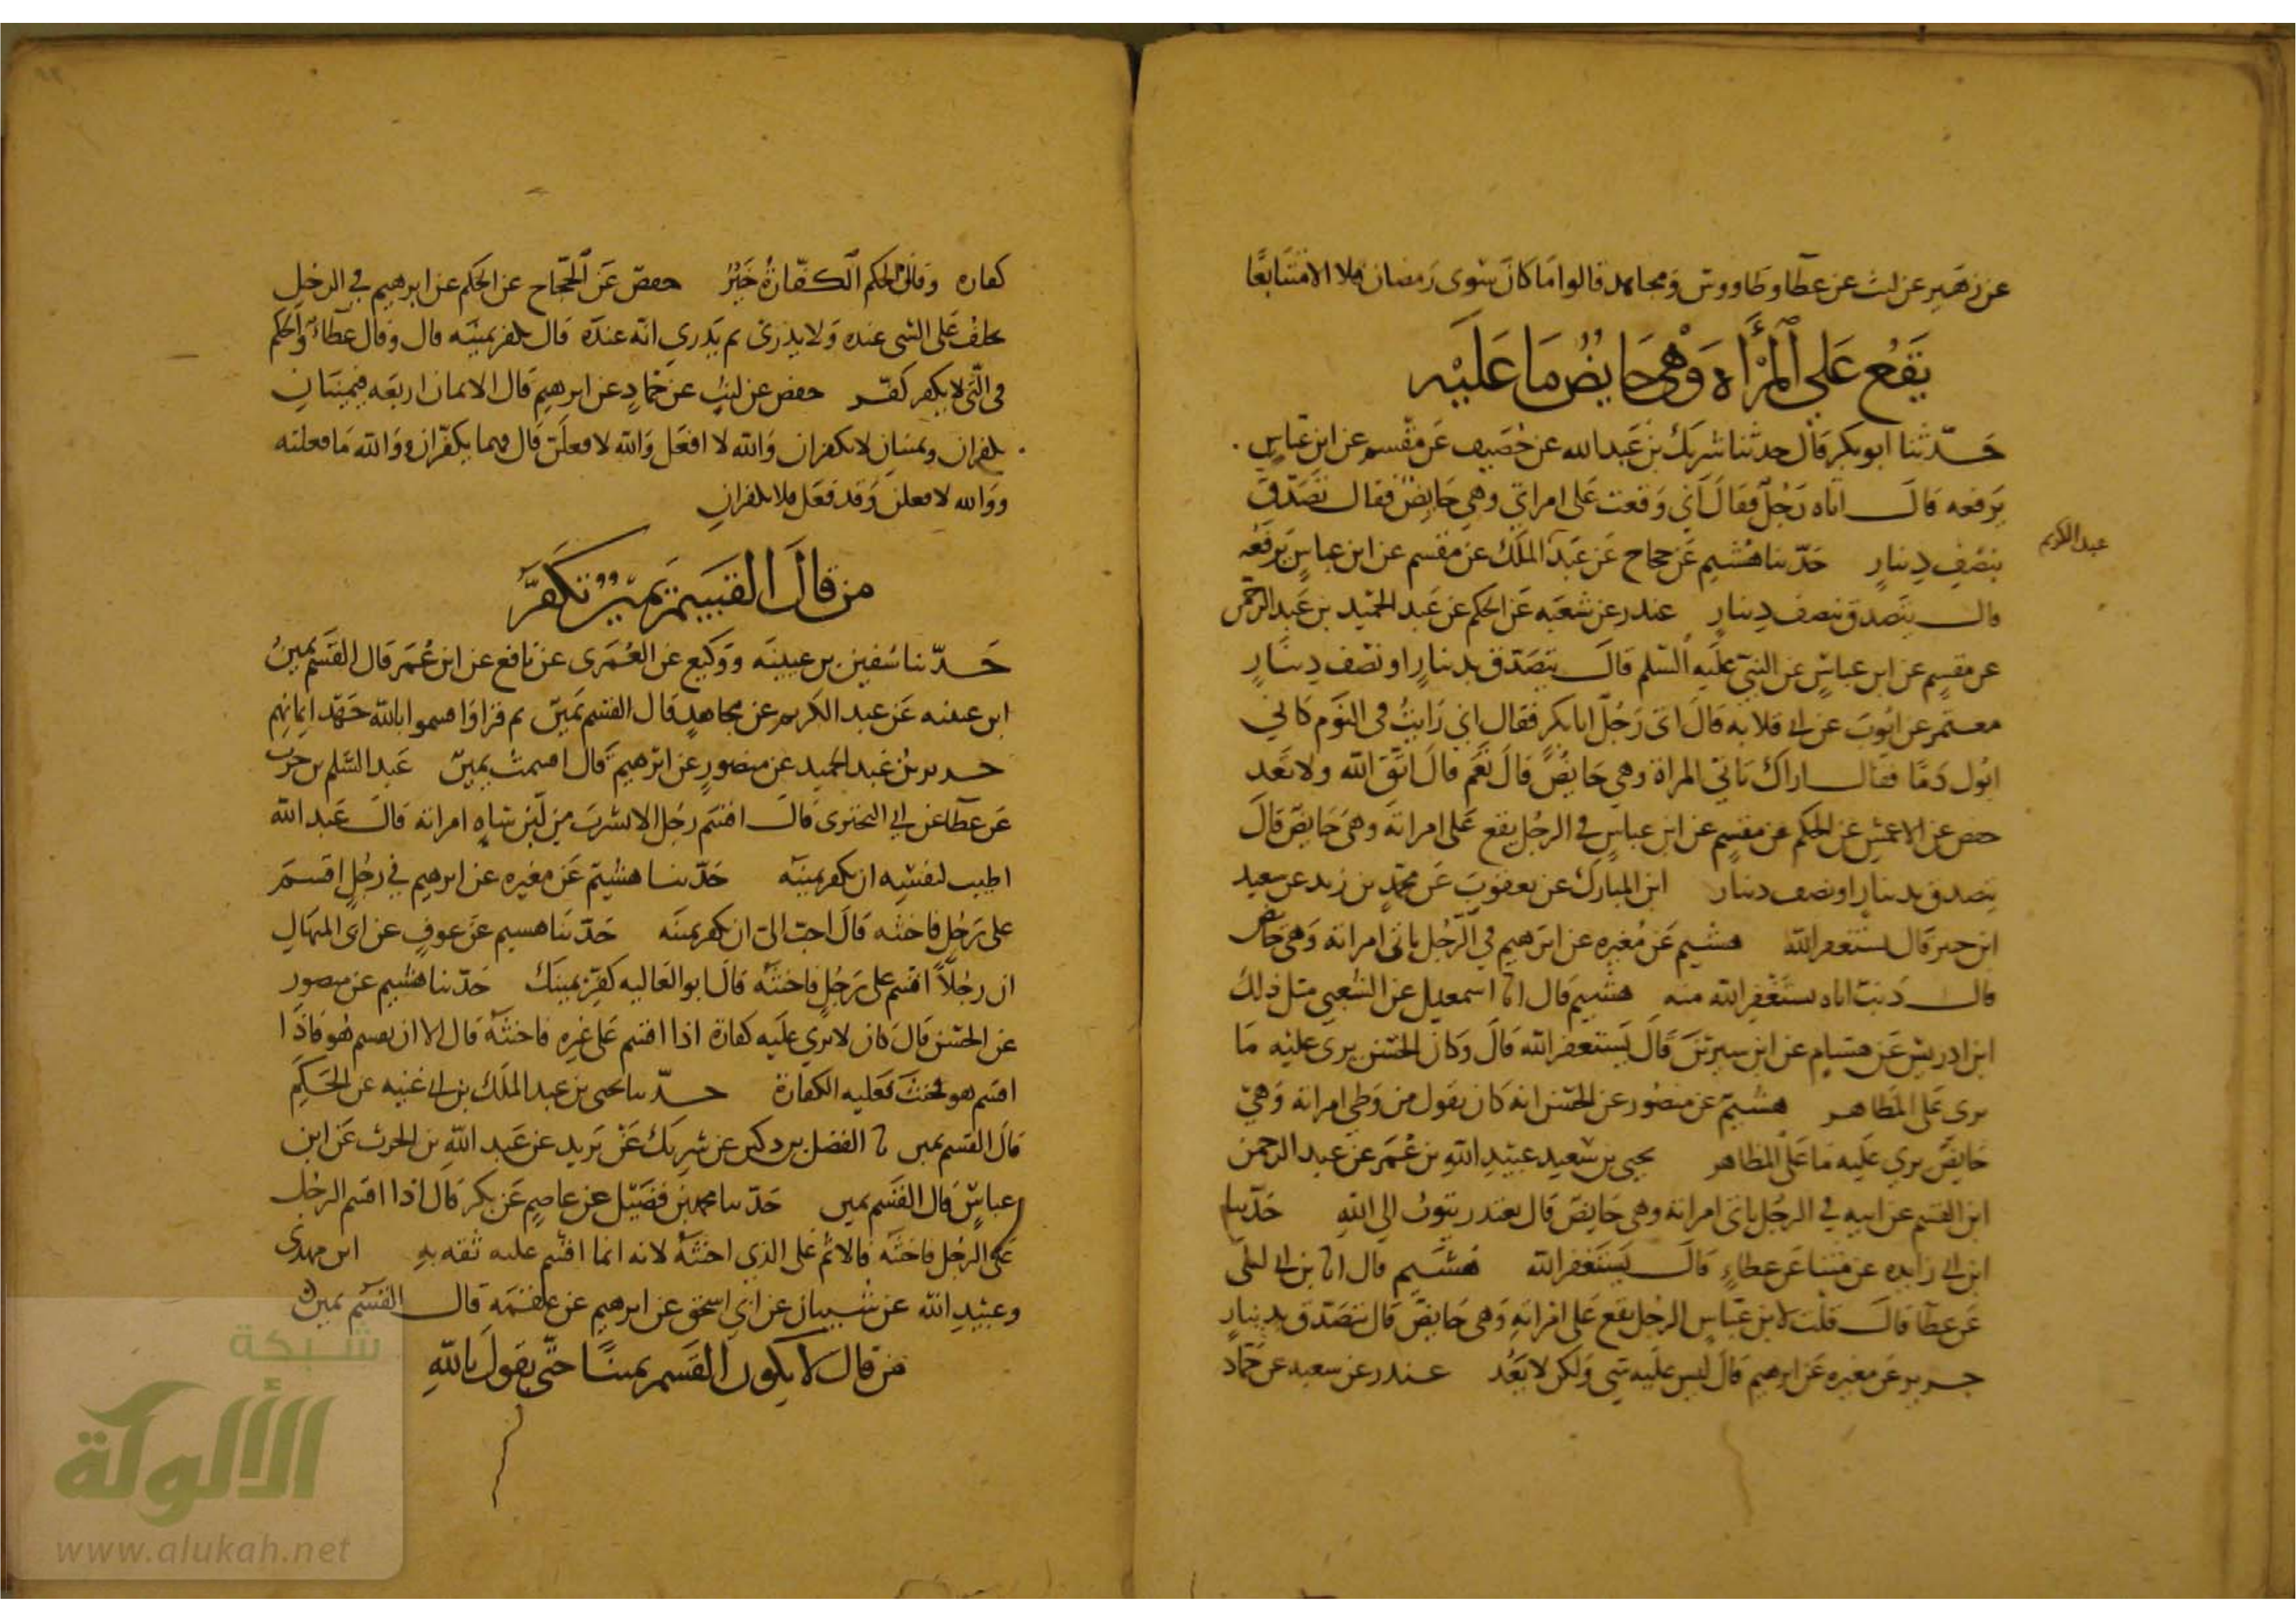 عن زهير عن ليث عن عطا وطاووس ومجاهد قالوا ما كان سوى رمضان فلا الا متتابعا
يقع على المرأة وهي حايض ما عليه
حدثنا ابو بكر قال حدثنا شريك بن عبد الله عن خصيف عن مقسم عن ابن عباس
يرفعه قال اتاه رجل فقال اني وقعت على امراتي وهي حايض فقال تصدق
بنصف دينار حدثنا هشيم عن حجاج عن عبد الملك عن مقسم عن ابن عباس يرفعه
عبد الكريم
قال يتصدق بنصف دينار غندر عن شعبه عن الحكم عن عبد الحميد بن عبد الرحمن
عن مقسم عن ابن عباس عن النبي عليه السلم قال يتصدق بدينار او نصف دينار
معتمر عن ايوب عن ابي قلابه قال اتى رجل ابا بكر فقال اني رايت في النوم كاني
ابول دما فقال اراك تاتي المراة وهي حايض قال نعم قال اتق الله ولا تعد
حفص عن الاعمش عن الحكم عن مقسم عن ابن عباس في الرجل يقع على امراته وهي حايض قال
يتصدق بدينار او نصف دينار ابن المبارك عن يعقوب عن محمد بن زيد عن سعيد
ابن جبير قال يستغفر الله هشيم عن مغيره عن ابرهيم في الرجل ياتي امراته وهي حايض
قال ذنب اتاه يستغفر الله منه هشيم قال انا اسمعيل عن الشعبي مثل ذلك
ابن ادريس عن هشام عن ابن سيرين قال يستغفر الله قال وكان الحسن يرى عليه ما
يرى على المظاهر هشيم عن منصور عن الحسن انه كان يقول من وطي امراته وهي
حايض يرى عليه ما على المظاهر يحيى بن سعيد عبيد الله بن عمر عن عبد الرحمن
ابن القسم عن ابيه في الرجل ياتي امراته وهي حايض قال يعتذر يتوب الى الله حدثنا
ابن ابي زايده عن مثنا عن عطاء قال يستغفر الله هشيم قال انا بن ابي ليلى
عن عطا قال قلت لابن عباس الرجل يقع على امراته وهي حايض قال يتصدق بدينار
جرير عن مغيره عن ابرهيم قال ليس عليه شي ولكن لا يعد غندر عن سعيد عن حماد
كفاره وقال الحكم الكفارة خير حفص عن الحجاج عن الحكم عن ابرهيم في الرجل
يحلف على الشي عنده ولا يدرى ثم يدري انه عنده قال يكفر يمينه قال وقال عطاء والحكم
في التي لا يكفر كفر حفص عن ليث عن حماد عن ابرهيم قال الايمان اربعه فيمينان
يكفران ويمينان لا يكفران والله لا افعل والله لافعلن قال فهما يكفران ووالله ما فعلته
ووالله لافعلن وقد فعل فلا يكفران
من قال القسم يمين تكفر
حدثنا سفين بن عيينه ووكيع عن العمرى عن نافع عن ابن عمر قال القسم يمين
ابن عيينه عن عبد الكريم عن مجاهد قال القسم يمين ثم قرا واقسموا بالله جهد ايمانهم
جرير بن عبد الحميد عن منصور عن ابرهيم قال اقسمت يمين عبد السلم بن حرب
عن عطا عن ابي البختري قال اقسم رجل الا يشرب من لبن شاه امراته قال عبد الله
اطيب لنفسه ان يكفر يمينه حدثنا هشيم عن مغيره عن ابرهيم في رجل اقسم
على رجل فاحنثه قال احب الى ان يكفر يمينه حدثنا هشيم عن عوف عن ابي المنهال
ان رجلا اقسم على رجل فاحنثه قال ابو العاليه كفر يمينك حدثنا هشيم عن منصور
عن الحسن قال كان لا يرى عليه كفارة اذا اقسم على غيره فاحنثه قال الا ان يقسم هو فاذا
اقسم هو فحنث فعليه الكفارة حدثنا يحيى بن عبد الملك بن ابي غنيه عن الحكم
قال القسم يمين نا الفضل بن دكين عن شريك عن يزيد عن عبد الله بن الحرث عن ابن
عباس قال القسم يمين حدثنا محمد بن فضيل عن عاصم عن بكر قال اذا اقسم الرجل
على الرجل فاحنثه فالاثم على الذي احنثه لانه انما اقسم عليه ثقه به ابن مهدي
وعبيد الله عن شيبان عن ابي اسحق عن ابرهيم عن علقمه قال القسم يمين
من قال لا يكون القسم يمينا حتى يقول بالله
شبكة
الألوكة
www.alukah.net